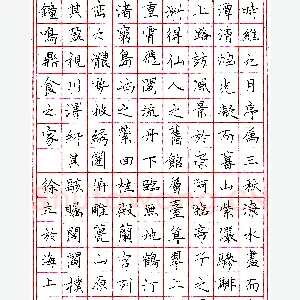 時維九月序屬三秋潦水盡而
潭清煙光凝而暮山紫儼驂騑
上路訪風景於崇阿臨帝子之
洲得仙人之舊館層臺聳翠上
重霄飛閣流丹下臨無地鶴汀
渚窮島嶼之縈回桂殿蘭宮列
巒之體勢披繡闥俯雕甍山原
其盈視川澤紆其駭矚閭閻撲
鐘鳴鼎食之家 徐立於海上